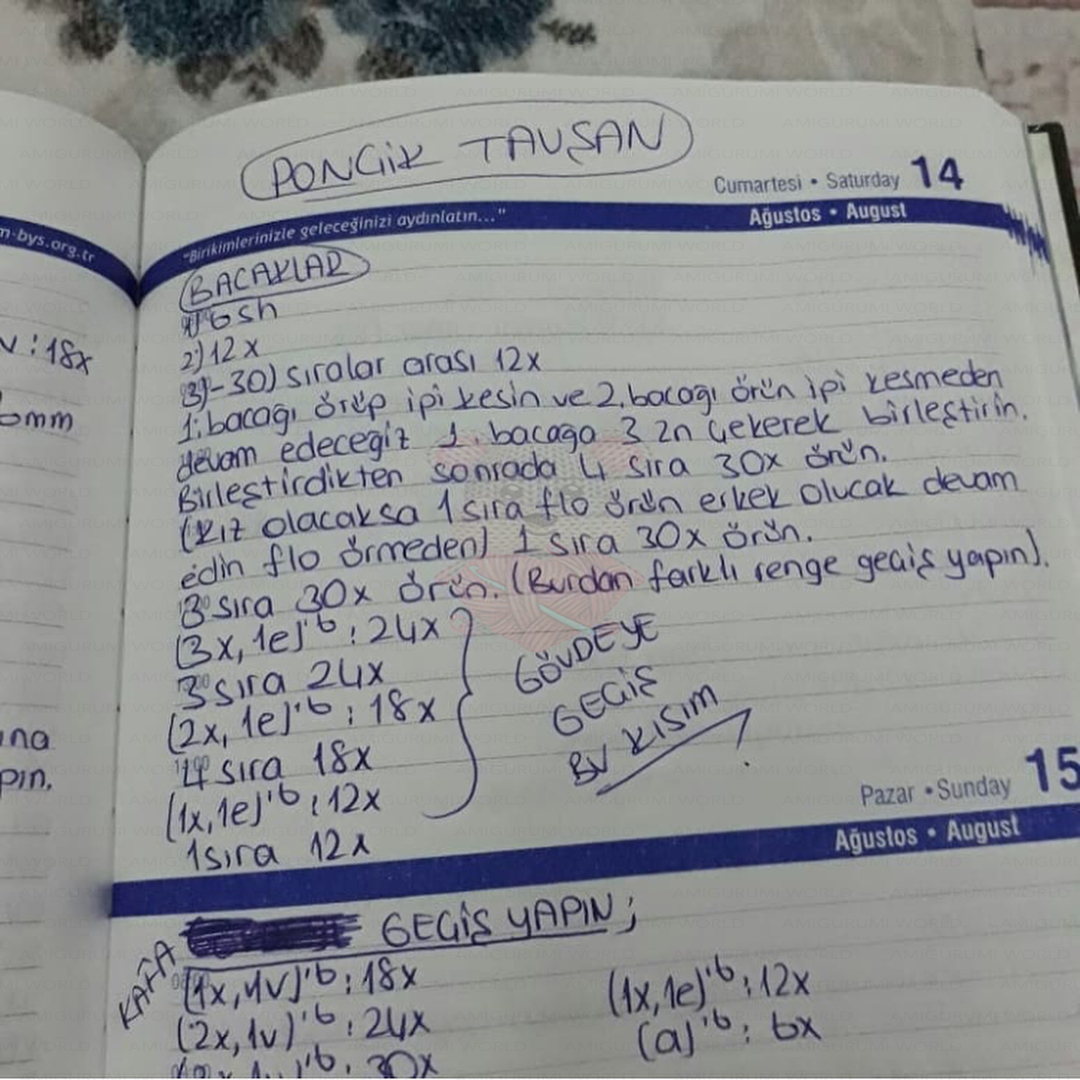 PONÇİK TAVŞAN
Cumartesi • Saturday 14
Ağustos • August
m-bys.org.tr
"Birikimlerinizle geleceğinizi aydınlatın..."
BACAKLAR
1) 6sh
2) 12x
3)-30) sıralar arası 12x
1. bacağı örüp ipi kesin ve 2. bacağı örün ipi kesmeden
devam edeceğiz 1. bacağa 3 zn çekerek birleştirin.
Birleştirdikten sonrada 4 sıra 30x örün.
(kız olacaksa 1 sıra flo örün erkek olucak devam
edin flo örmeden) 1 sıra 30x örün.
3 sıra 30x örün. (Burdan farklı renge geçiş yapın).
(3x, 1e)'6 : 24x
3 sıra 24x
(2x, 1e)'6 : 18x
4 sıra 18x
(1x, 1e)'6 : 12x
1 sıra 12x
GÖVDEYE
GEÇİŞ
BU KISIM
v : 18x
6mm
ına
pın.
Pazar • Sunday 15
Ağustos • August
KAFA GEÇİŞ YAPIN;
(1x, 1v)'6 : 18x
(2x, 1v)'6 : 24x
'6 : 30x
(1x, 1e)'6 : 12x
(a)'6 : 6x
AMIGURUMI WORLD